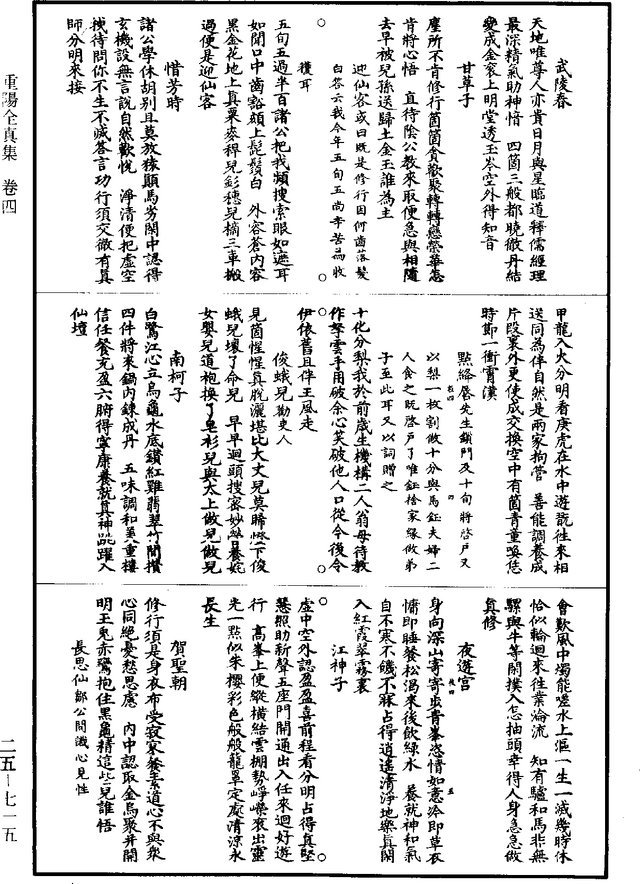 武陵春
天地唯尊人亦貴日月與星臨道釋儒經理
最深精氣助神愔　四箇三般都曉徹丹結
變成金袞上明堂透玉岑空外得知音
甘草子
塵所不肯修行箇箇貪歡聚轉轉戀榮華怎
肯將心悟　直待陰公教來取便急與相隨
去早被兒孫送歸土金玉誰為主
迎仙客或曰既是修行因何齒落髮
白答云我今年五旬五尚李苦為收
穫耳
五旬五過半百諸公把我頻搜索眼如遮耳
如聞口中齒豁頦上髭鬚白　外容蒼内容
黑金花地上真栗麥稈兒彭穗兒摘三車搬
過便是迎仙客
惜芳時
諸公學休胡別且莫放猿顛馬劣閑中認得
玄機設無言說自然歡悅　淨清便把虛空
拽待問你不生不滅答言功行須交徹有真
師分明來接
甲龍入火分明看庚虎在水中遊翫往來相
送同為伴自然是兩家拘管　善能調養成
片段裏外更使成交換空中有箇青童喚恁
時節一衝霄漢
點絳唇先生鎖門及十旬將啓户又
以梨一枚割做十分與馬鈺夫婦二
人食之既啓户了唯鈺捨家緣做弟
子至此耳又以詞贈之
十化分梨我於前歲生機構二人翁母待教
作拏雲手用破余心笑破他人口從今後令
伊依舊且伴王風走
俊蛾兒勸吏人
見箇惺惺真脫灑堪比大丈兒莫睎㦬下俊
蛾兒壞了命兒　早早迴頭搜密妙結養姹
女嬰兒道袍換了皂衫兒與太上做兒做兒
南柯子
白鷺江心立烏龜水底鑽紅雞翡翠竹間攢
四件將來鍋内鍊成丹　五味調和美重樓
信任餐充盈六腑得寧康養就真神跳躍入
仙壇
會歎風中燭能嗟水上漚一生一滅幾時休
恰似輪迴來往業淪流　知有驢和馬非無
騾與牛等閑撲入怎抽頭幸得人身急急做
真修
夜遊宮
身向深山寄寄虫青峯恣情如意冷即草衣
慵即睡餐松渴來後飲綠水　養就神和氣
自不寒不饑不寐占得逍遙清淨地樂真閑
入紅霞翠霧裏
江神子
虛中空外認盈盈喜前程看分明占得真堅
慧照助新聲五座門開通出入任來迴好遊
行　高峯上便縱橫結雲棚勢崢嶸衮出靈
光一點似朱櫻彩色般般籠罩定處清涼永
長生
賀聖朝
修行須是身衣布受寂寥餐素道心不與衆
心同絶憂愁思慮　内中認取金烏聚并開
明玉兔赤鸞抱住黑龜精這些兒誰悟
長思仙鄒公問識心見性
重陽全真集　卷四
二五—七一五